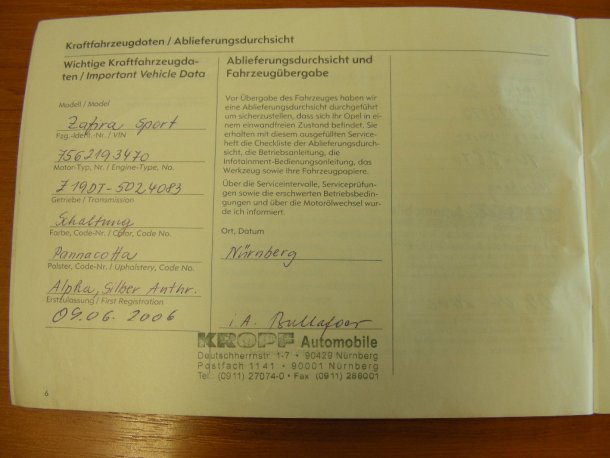 Kraftfahrzeugdaten / Ablieferungsdurchsicht
Wichtige Kraftfahrzeugda-
ten / Important Vehicle Data
Modell / Model
Zafira Sport
Fzg.-Ident.-Nr. / VIN
7562193470
Motor-Typ, Nr. / Engine-Type, No.
Z19DT-5024083
Getriebe / Transmission
Schaltung
Farbe, Code-Nr. / Color, Code No.
Pannacotta
Polster, Code-Nr. / Upholstery, Code No.
Alpha, Silber Anthr.
Erstzulassung / First Registration
09.06.2006
6
Ablieferungsdurchsicht und
Fahrzeugübergabe
Vor Übergabe des Fahrzeuges haben wir
eine Ablieferungsdurchsicht durchgeführt
um sicherzustellen, dass sich Ihr Opel in ei-
nem einwandfreien Zustand befindet. Sie
erhalten mit diesem ausgefüllten Service-
heft die Checkliste der Ablieferungsdurch-
sicht, die Betriebsanleitung, die
Infotainment-Bedienungsanleitung, das
Werkzeug sowie Ihre Fahrzeugpapiere.
Über die Serviceintervalle, Serviceprüfun-
gen sowie die erschwerten Betriebsbedin-
gungen und über die Motorölwechsel wur-
de ich informiert.
Ort, Datum
Nürnberg
i.A.
KROPF Automobile
Deutschherrnstr. 1-7 • 90429 Nürnberg
Postfach 1141 • 90001 Nürnberg
Tel. (0911) 27074-0 • Fax (0911) 288001